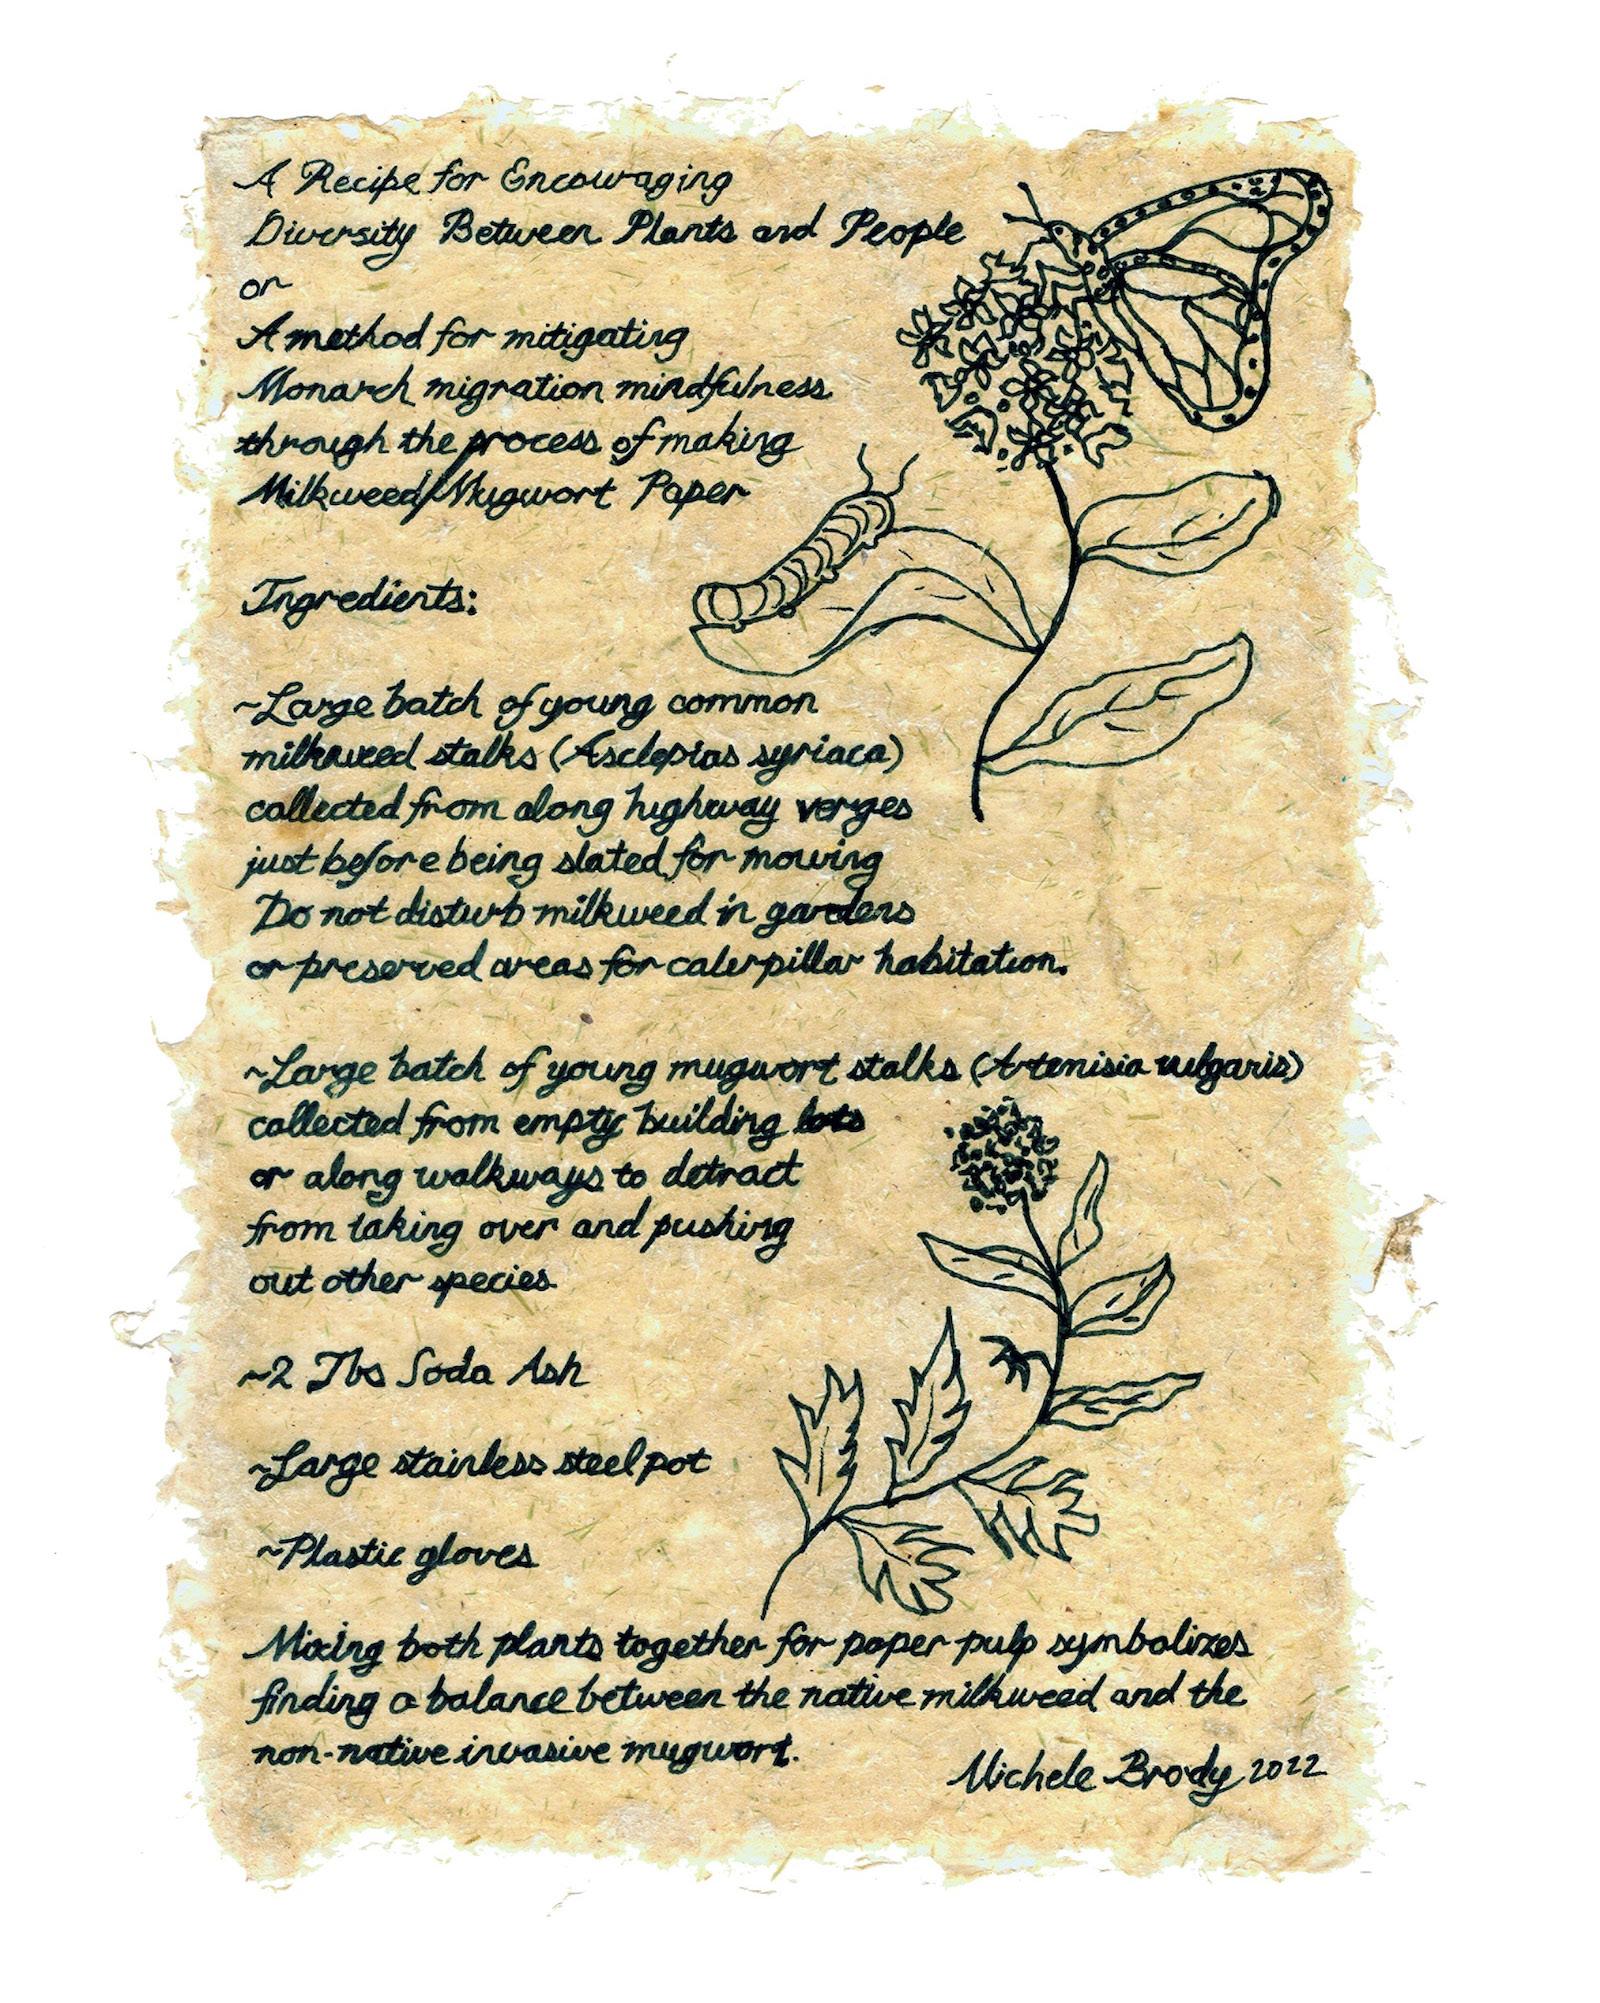 A Recipe for Encouraging
Diversity Between Plants and People
or
A method for mitigating
Monarch migration mindfulness
through the process of making
Milkweed/Mugwort Paper
Ingredients:
~Large batch of young common
milkweed stalks (Asclepias syriaca)
collected from along highway verges
just before being slated for mowing
Do not disturb milkweed in gardens
or preserved areas for caterpillar habitation.
~Large batch of young mugwort stalks (Artemisia vulgaris)
collected from empty building lots
or along walkways to detract
from taking over and pushing
out other species.
~2 Tbs Soda Ash
~Large stainless steel pot
~Plastic gloves
Mixing both plants together for paper pulp symbolizes
finding a balance between the native milkweed and the
non-native invasive mugwort.
Michele Brody 2022